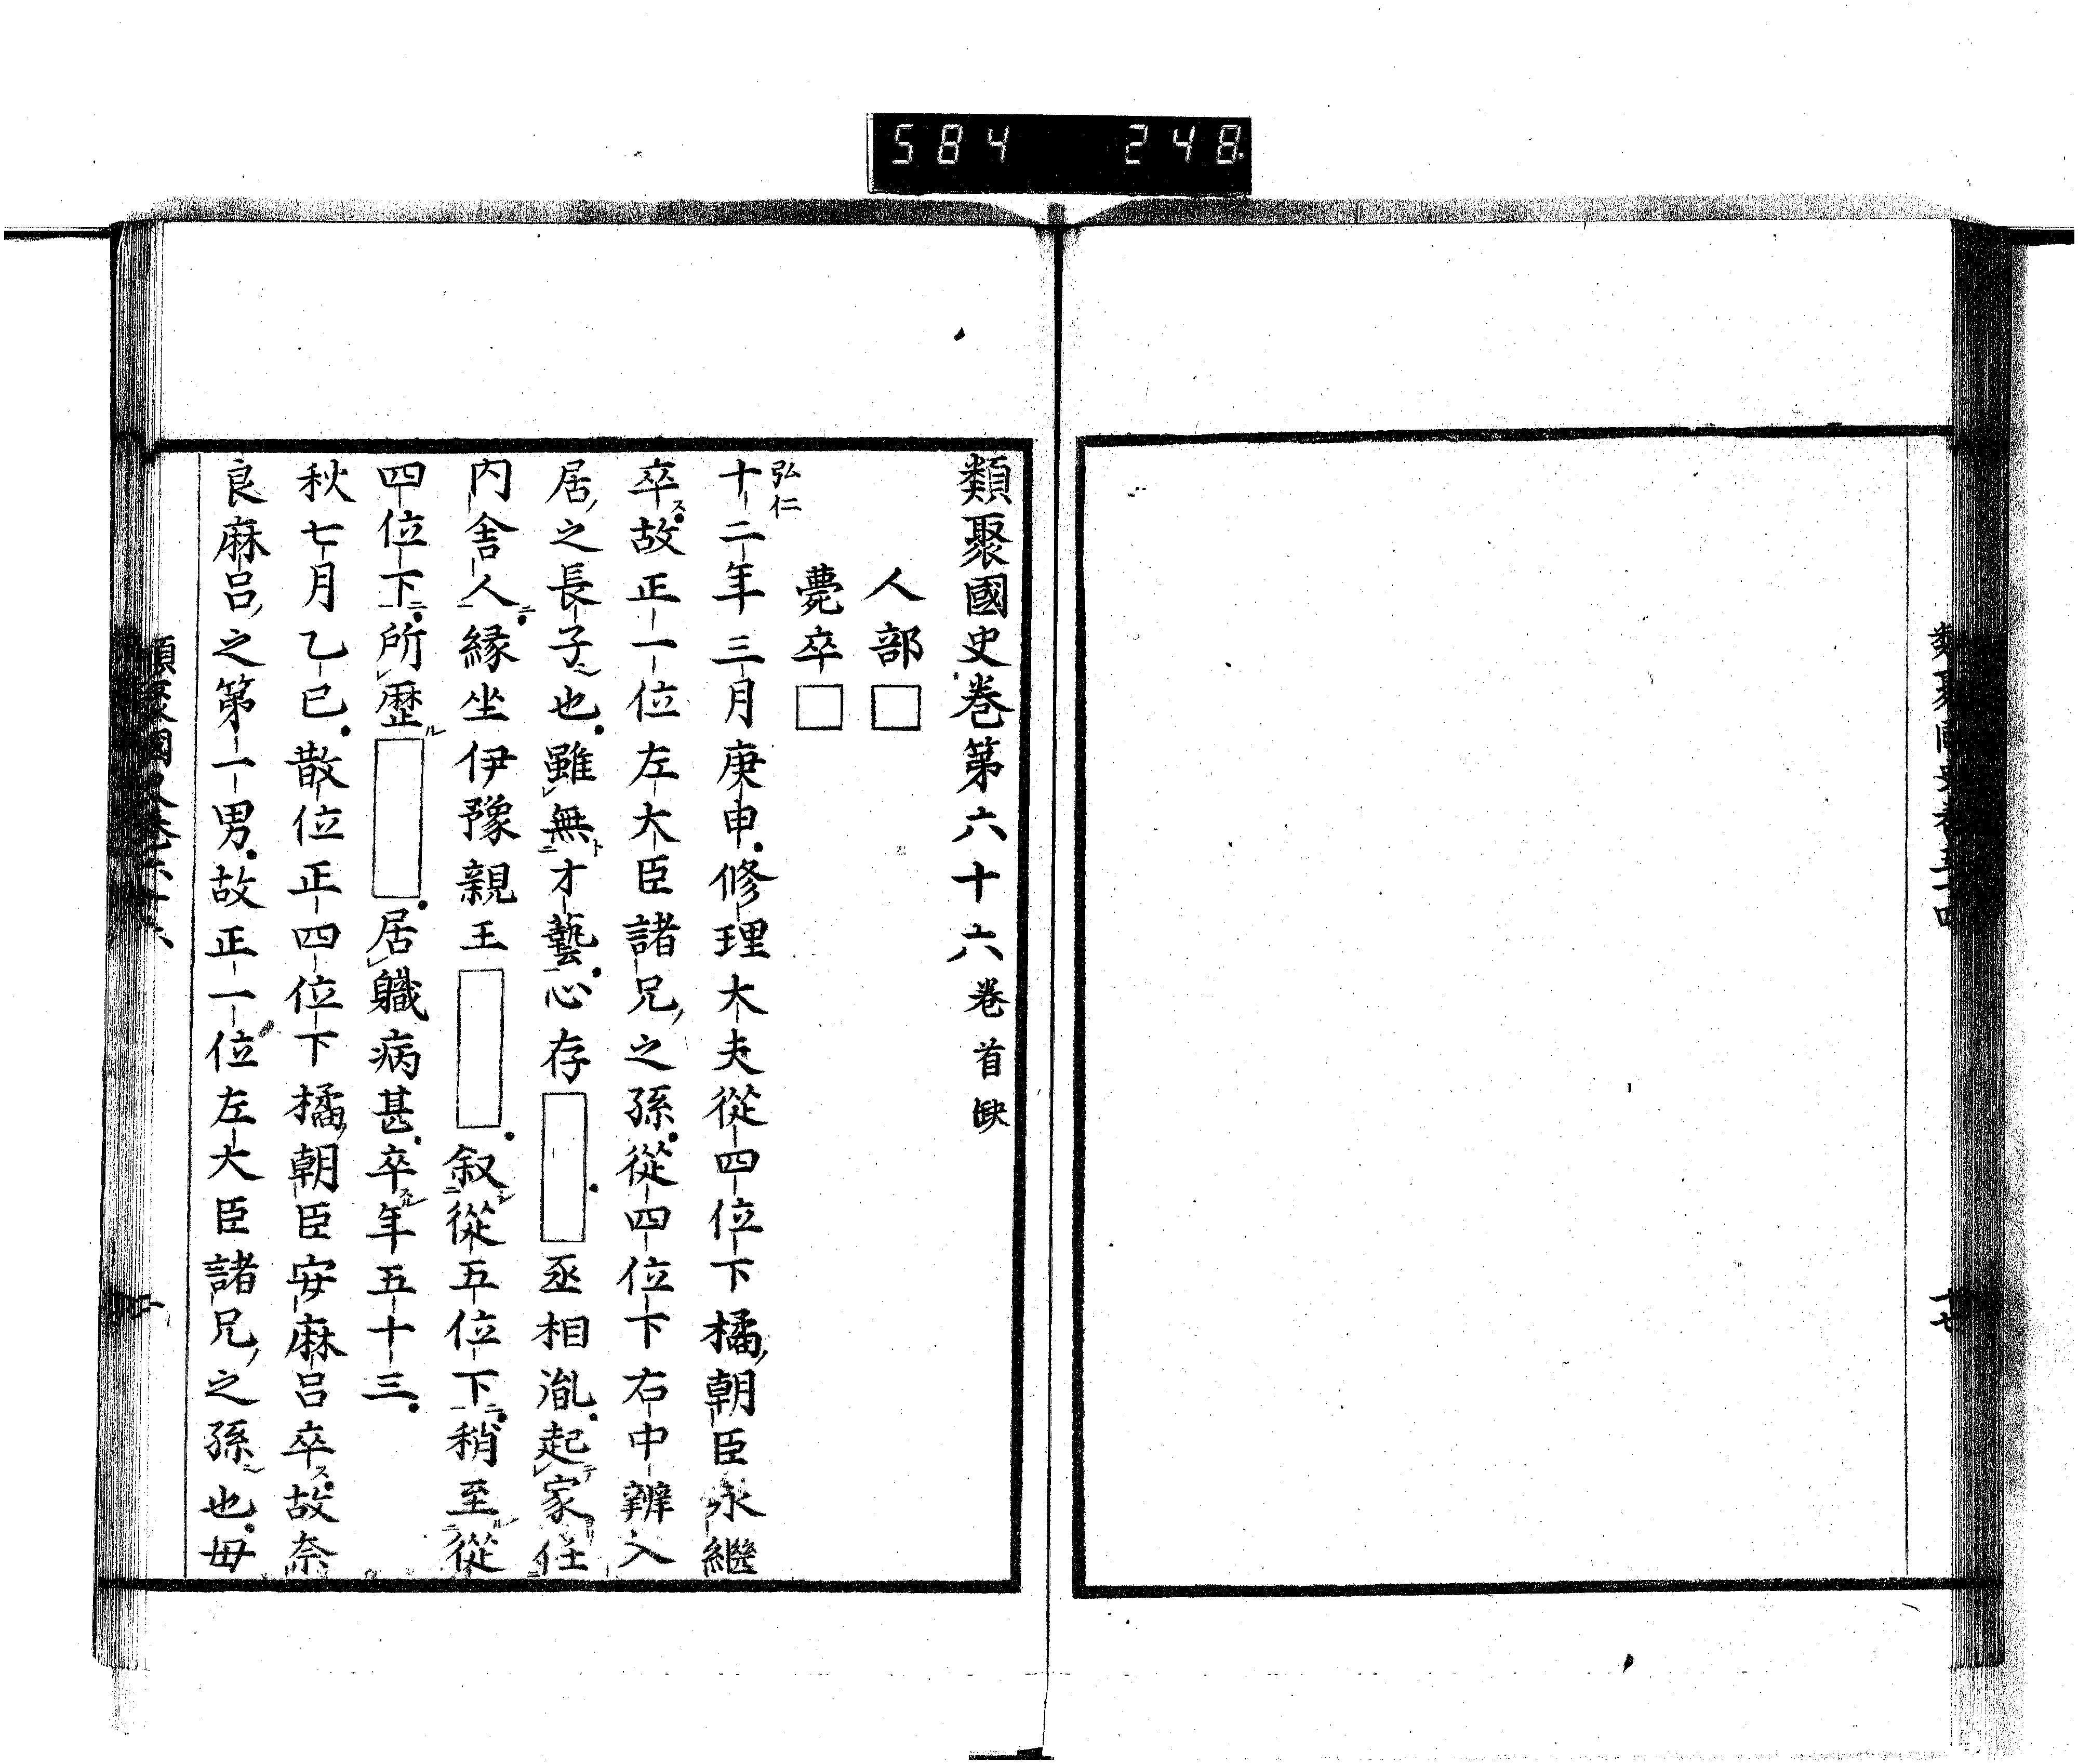 584 248
十七
類聚國史卷第六十六 卷首缺
人部□
薨卒□
弘仁
十二年三月庚申修理大夫從四位下橘朝臣永繼
卒故正一位左大臣諸兄之孫從四位下右中辨入
居之長子也雖無才藝心存□丞相胤起家任
内舎人縁坐伊豫親王□叙從五位下稍至從
四位下所歴□居軄病甚卒年五十三
秋七月乙巳散位正四位下橘朝臣安麻呂卒故奈
良麻呂之第一男故正一位左大臣諸兄之孫也毋